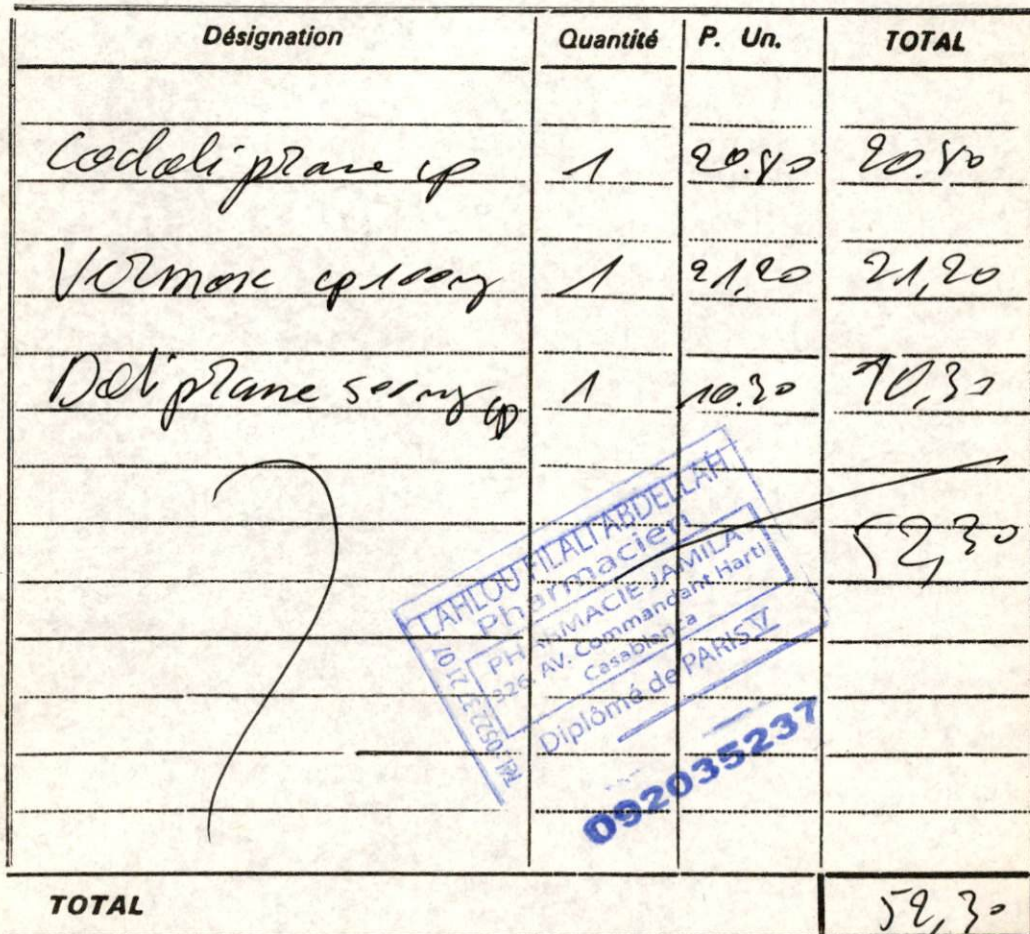 Désignation Quantité P. Un. TOTAL
Codoliprane cp 1 20.80 20.80
Vermox cp 100mg 1 21,20 21,20
Doliprane 500mg cp 1 10.30 10,30
52,30
LAHLOU FILALI ABDELLAH
Pharmacien
PHARMACIE JAMILA
326, AV. Commandant Harti
Casablanca
Diplômé de PARIS V
092035237
TOTAL 52,30